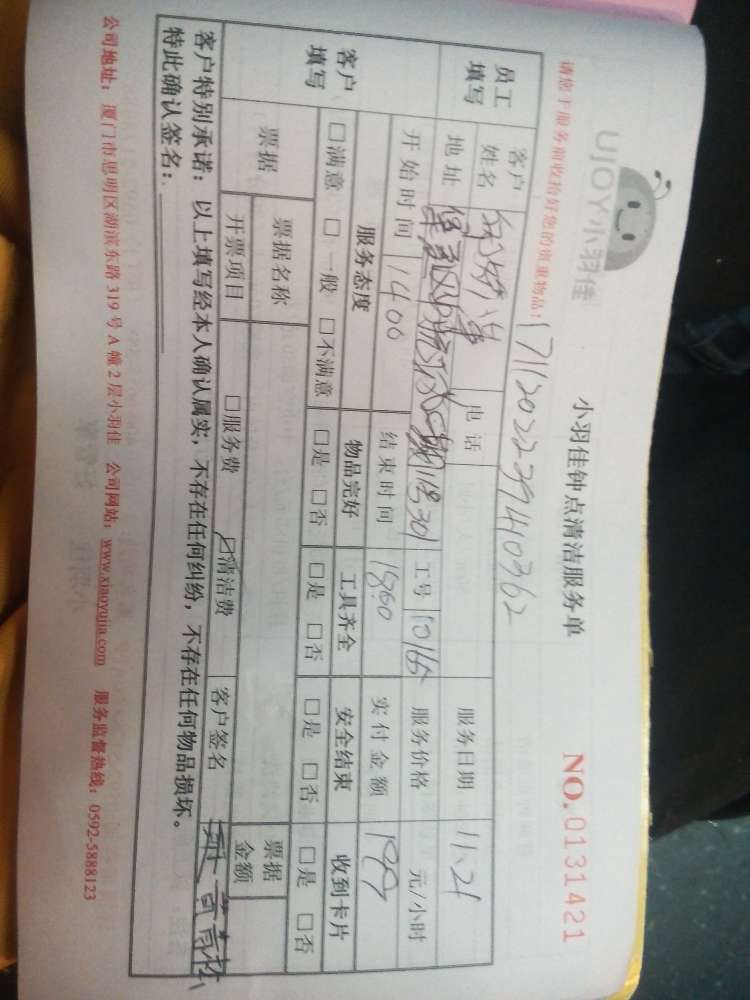 UJOY小羽佳
小羽佳钟点清洁服务单
NO.0131421
请您于服务前收拾好您的贵重物品!
1711202239410362
员工填写 客户姓名 电话 服务日期 11.21
地址 工号 服务价格 元/小时
开始时间 1400 结束时间 1800 实付金额
客户填写 服务态度 物品完好 工具齐全 安全结束 收到卡片
□满意 □一般 □不满意 □是 □否 □是 □否 □是 □否 □是 □否
票据 票据名称 票据金额
开票项目 □服务费 ☑清洁费 客户签名
客户特别承诺:以上填写经本人确认属实,不存在任何纠纷,不存在任何物品损坏。
特此确认签名:
公司地址:厦门市思明区湖滨东路319号A幢2层小羽佳 公司网站:www.xiaoyujia.com 服务监督热线:0592-5888123